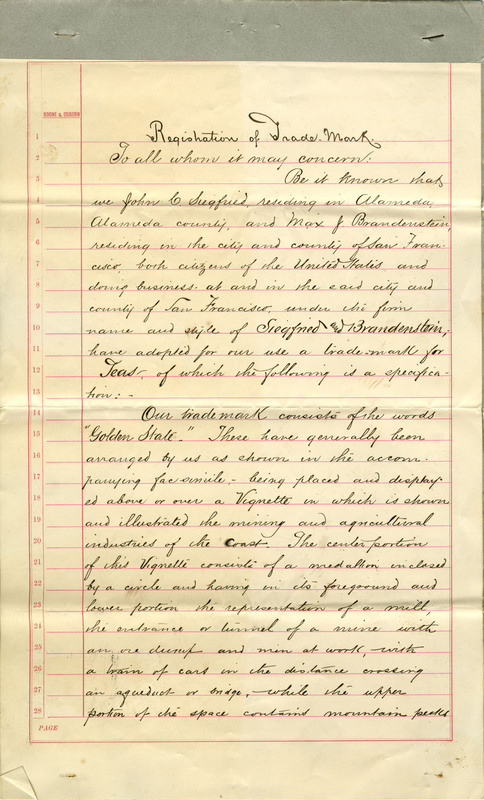 BOONE & OSBORN
Registration of Trade-Mark.
To all whom it may concern:
Be it Known that
we John C. Siegfried, residing in Alameda,
Alameda county, and Max J Brandenstein,
residing in the city and county of San Fran-
cisco, both citizens of the United States and
doing business at and in the said city and
county of San Francisco, under the firm
name and style of Siegfried and Brandenstein,-
have adopted for our use a trade-mark for
Teas, of which the following is a specifica-
tion:-
Our trademark consists of the words
"Golden State." These have generally been
arranged by us as shown in the accom-
panying fac-simile,- being placed and display-
ed above or over a Vignette in which is shown
and illustrated the mining and agricultural
industries of the Coast. The center portion
of this Vignette consists of a medallion inclosed
by a circle and having in its foreground and
lower portion the representation of a mill,
the entrance or tunnel of a mine with
an ore dump and men at work,- with
a train of cars in the distance crossing
an aqueduct or bridge,- while the upper
portion of the space contains mountain peaks
1
2
3
4
5
6
7
8
9
10
11
12
13
14
15
16
17
18
19
20
21
22
23
24
25
26
27
28
PAGE